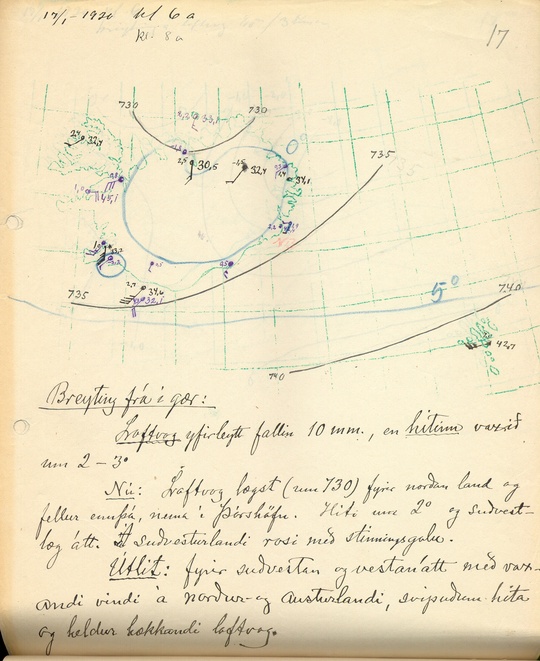 17/1 - 1920 kl 6 a
kl. 8 a
17
730
730
735
0°
2,4 32,4
30,5
32,4
34,1
2,7 34,6
32,1
735
5°
740
42,7
740
Breyting frá í gær:
Loftvog yfirleytt fallin 10 mm., en hitinn vaxið
um 2-3°
Nú: Loftvog lægst (um 730) fyrir norðan land og
fellur ennþá, nema í Þórshöfn. Hiti um 2° og suðvest-
læg átt. Á suðvesturlandi rosi með stinningsgolu.
Útlit: fyrir suðvestan og vestanátt með vax-
andi vindi á norður- og austurlandi, svipuðum hita
og heldur hækkandi loftvog.